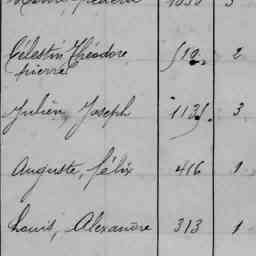 Célestin Théodore 512. 2
pierre
Julien, Joseph 1121. 3
Auguste, félix 416 1
Louis, Alexandre 313 1